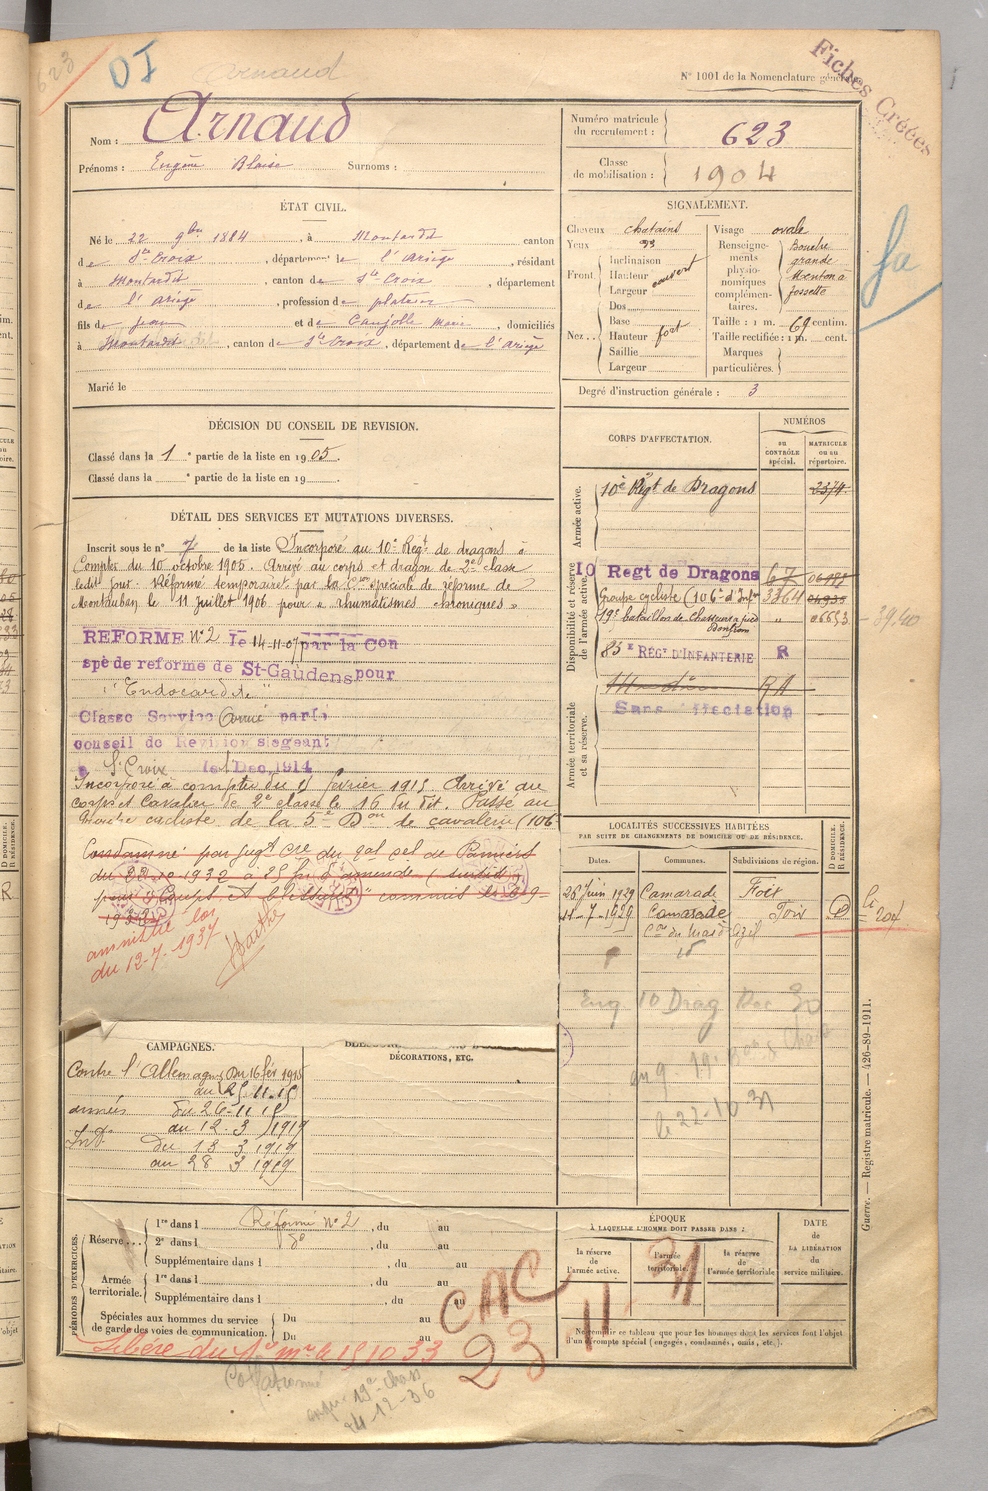 623
DI
Arnaud
N° 1001 de la Nomenclature générale
Fiches Créées
Nom : Arnaud
Prénoms : Eugène Blaise Surnoms :
Numéro matricule du recrutement : 623
Classe de mobilisation : 1904
ÉTAT CIVIL.
Né le 22 9bre 1884, à Montardit canton
de Ste Croix, département de l'Ariège, résidant
à Montardit, canton de Ste Croix, département
de l'Ariège, profession de platrier
fils de Jean et de Caujolle Marie, domiciliés
à Montardit, canton de Ste Croix, département de l'Ariège
Marié le
SIGNALEMENT.
Cheveux chatains
Yeux
Front
Inclinaison
Hauteur
Largeur
couvert
Dos
Nez
Base
Hauteur
fort
Saillie
Largeur
Visage ovale
Renseignements physionomiques complémentaires.
Bouche
grande
Menton à
fossette
Taille : 1 m. 69 centim.
Taille rectifiée : 1 m. cent.
Marques particulières.
Degré d'instruction générale : 3
fa
DÉCISION DU CONSEIL DE REVISION.
Classé dans la 1e partie de la liste en 1905.
Classé dans la e partie de la liste en 19
CORPS D'AFFECTATION.
NUMÉROS
au CONTRÔLE spécial.
MATRICULE ou au répertoire.
Armée active.
10e Régt de Dragons
Disponibilité et réserve de l'armée active.
10 Regt de Dragons 67
Groupe cycliste (106e d'Infie 3364
19e bataillon de chasseurs à pied " 06653
39.40
85e REGt D'INFANTERIE R
Armée territoriale et sa réserve.
Sans affectation
DÉTAIL DES SERVICES ET MUTATIONS DIVERSES.
Inscrit sous le n° 7 de la liste Incorporé au 10e Régt de dragons à
compter du 10 octobre 1905. Arrivé au corps et dragon de 2e classe
ledit jour. Réformé temporairet par la Con spéciale de réforme de
Montauban le 11 juillet 1906 pour « rhumatismes chroniques »
REFORME N°2 le 14-11-07 par la Con
spé de reforme de St-Gaudens pour
"Endocardite"
Classé Service armé par le
conseil de Revision siégeant
à Ste Croix le 1 Dec. 1914
Incorporé à compter du 15 février 1915 Arrivé au
corps et Cavalier de 2e classe le 16 du dit. Passé au
Groupe cycliste de la 5e Don de cavalerie (106
Condamné par jugt du
1932 à 25 fr d'amende
pour "Coups et blessures" commis le
amnistié loi
du 12-7-1937
LOCALITÉS SUCCESSIVES HABITÉES
PAR SUITE DE CHANGEMENTS DE DOMICILE OU DE RÉSIDENCE.
Dates. Communes. Subdivisions de région.
D DOMICILE. R RÉSIDENCE.
26 Juin 1929 Camarade Foix
11-7-1929 Camarade Foix D
Con du Mas d'Azil
CAMPAGNES.
Contre l'Allemagne Du 16 fév 1915
au 25.11.15
armées du 26-11 15
au 12.3 1919
Int. du 13 3 1919
au 28 3 1919
DÉCORATIONS, ETC.
10 Drag
le 22-10 31
Guerre. — Registre matricule. — 426-89-1911.
PÉRIODES D'EXERCICES.
Réserve...
1re dans l Réformé N°2, du au
2e dans l do, du au
Supplémentaire dans l , du au
Armée territoriale.
1re dans l , du au
Supplémentaire dans l , du au
Spéciales aux hommes du service de garde des voies de communication.
Du au
Du au
ÉPOQUE
À LAQUELLE L'HOMME DOIT PASSER DANS :
la réserve de l'armée active.
l'armée territoriale.
la réserve de l'armée territoriale
DATE DE LA LIBÉRATION du service militaire.
Ne remplir ce tableau que pour les hommes dont les services font l'objet d'un décompte spécial (engagés, condamnés, omis, etc.).
CAC
23
11. 31
Libéré du Sce mre le 15 10 33
Collationné
19e chass
24-12-36